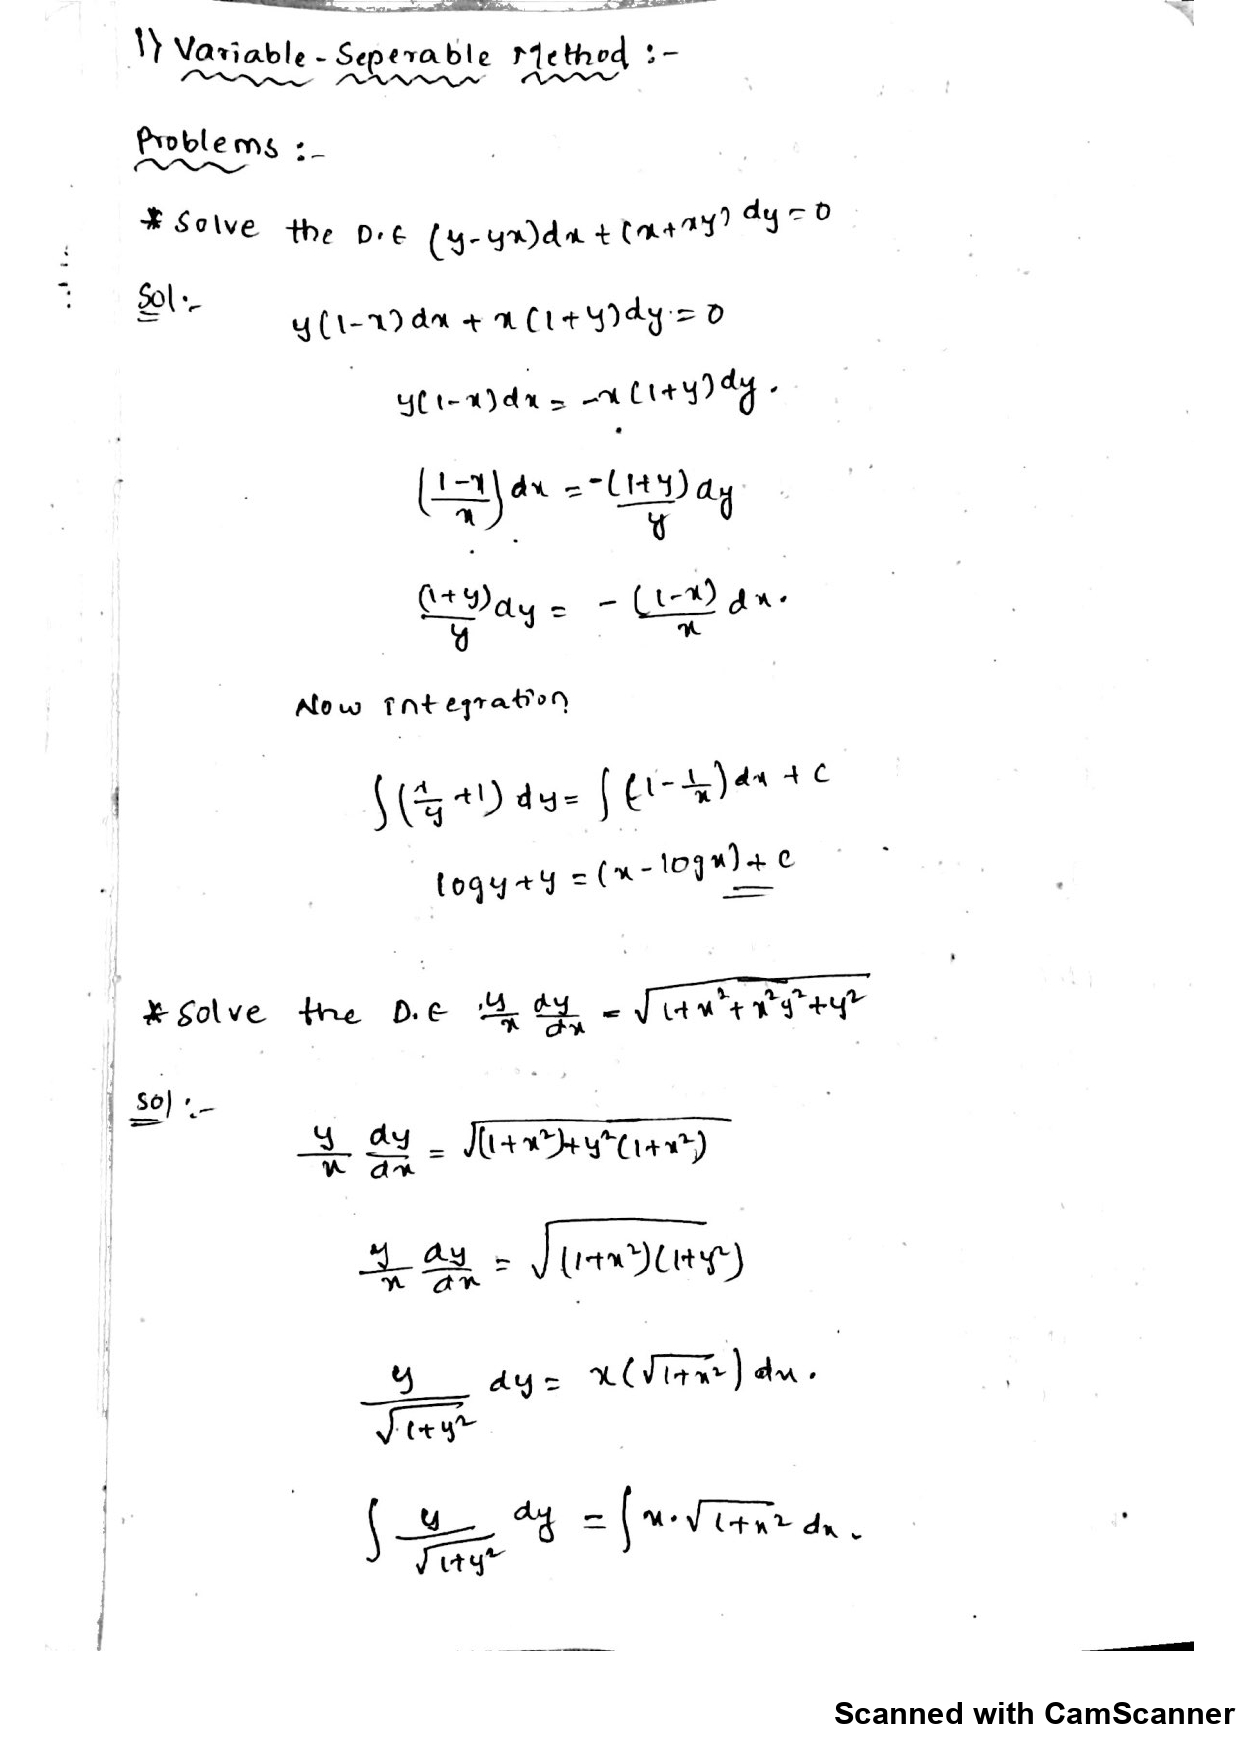 1) Variable - Seperable Method :-
Problems :-
* Solve the D.E (y-yx)dx + (x+xy) dy = 0
Sol:-
y(1-x)dx + x(1+y)dy = 0
y(1-x)dx = -x(1+y)dy.
((1-x)/x) dx = -(1+y)/y dy
(1+y)/y dy = -(1-x)/x dx.
Now integration
∫(1/y +1) dy = ∫(1-1/x) dx + c
logy + y = (x - logx) + c
* Solve the D.E y/x dy/dx = √(1+x²+x²y²+y²)
Sol :-
y/x dy/dx = √((1+x²)+y²(1+x²))
y/x dy/dx = √((1+x²)(1+y²))
y/√(1+y²) dy = x(√(1+x²)) dx.
∫ y/√(1+y²) dy = ∫ x.√(1+x²) dx.
Scanned with CamScanner